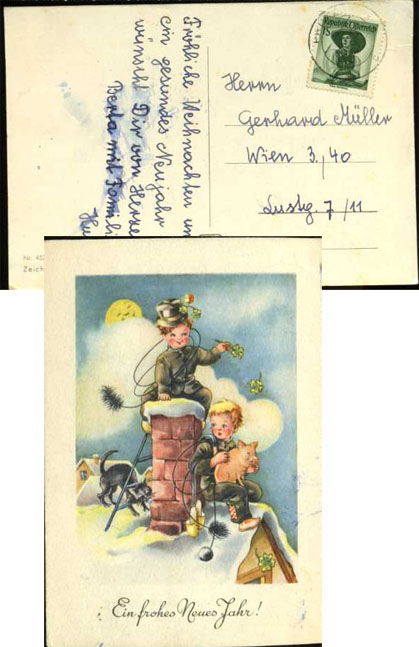 Fröhliche Weihnachten un
ein gesundes Neujahr
wünscht Dir von Herze
Berta mit Famili
Herrn
Gerhard Müller
Wien 3., 40
Lustg. 7/11
Republik Österreich
1S
Nr. 45
Zeich
Ein frohes Neues Jahr!